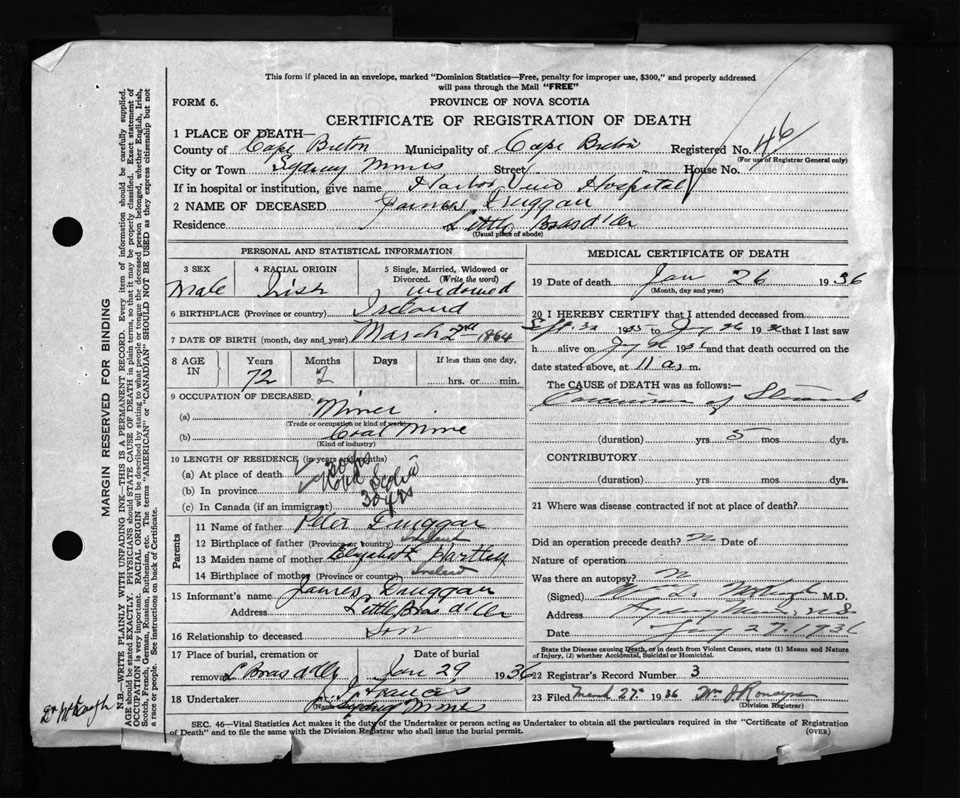 This form if placed in an envelope, marked "Dominion Statistics—Free, penalty for improper use, $300," and properly addressed
will pass through the Mail "FREE"
FORM 6.
PROVINCE OF NOVA SCOTIA
CERTIFICATE OF REGISTRATION OF DEATH
1 PLACE OF DEATH—
County of Cape Breton Municipality of Cape Breton Registered No. 46
(For use of Registrar General only)
City or Town Sydney Mines Street House No.
If in hospital or institution, give name Harbor View Hospital
2 NAME OF DECEASED James Druggan
Residence Little Bras d'Or
(Usual place of abode)
PERSONAL AND STATISTICAL INFORMATION
3 SEX 4 RACIAL ORIGIN 5 Single, Married, Widowed or
Divorced. (Write the word)
Male Irish widowed
6 BIRTHPLACE (Province or country) Ireland
7 DATE OF BIRTH (month, day and year) March 2nd 1864
8 AGE IN Years Months Days If less than one day,
72 2 hrs. or min.
9 OCCUPATION OF DECEASED
(a) Miner
(Trade or occupation or kind of work)
(b) Coal Mine
(Kind of industry)
10 LENGTH OF RESIDENCE (in years and months)
(a) At place of death
(b) In province Nova Scotia
(c) In Canada (if an immigrant) 30 yrs
Parents
11 Name of father Peter Druggan
12 Birthplace of father (Province or country) Ireland
13 Maiden name of mother Elizabeth Hartley
14 Birthplace of mother (Province or country) Ireland
15 Informant's name James Druggan
Address Little Bras d'Or
16 Relationship to deceased Son
17 Place of burial, cremation or Date of burial
removal L Bras d'Or Jan 29 1936
18 Undertaker
Sydney Mines
MEDICAL CERTIFICATE OF DEATH
19 Date of death Jan 26 1936
(Month, day and year)
20 I HEREBY CERTIFY that I attended deceased from
1935 to 1936 that I last saw
h alive on 1936 and that death occurred on
date stated above, at 11 a.m.
The CAUSE of DEATH was as follows:—
Carcinoma of Stomach
(duration) yrs 5 mos dys.
CONTRIBUTORY
(duration) yrs mos dys.
21 Where was disease contracted if not at place of death?
Did an operation precede death? Date of
Nature of operation
Was there an autopsy?
(Signed) M.D.
Address Sydney Mines, N S
Date 27, 1936
State the Disease causing Death, or in death from Violent Causes, state (1) Means and
Nature of Injury, (2) whether Accidental, Suicidal or Homicidal.
22 Registrar's Record Number 3
23 Filed 27th 1936
(Division Registrar)
SEC. 46—Vital Statistics Act makes it the duty of the Undertaker or person acting as Undertaker to obtain all the particulars required in the "Certificate of Registration
of Death" and to file the same with the Division Registrar who shall issue the burial permit.
(OVER)
MARGIN RESERVED FOR BINDING
N.B.—WRITE PLAINLY WITH UNFADING INK—THIS IS A PERMANENT RECORD. Every item of information should be carefully supplied.
AGE should be stated EXACTLY. PHYSICIANS should STATE CAUSE OF DEATH in plain terms, so that it may be properly classified. Exact statement of
OCCUPATION is very important. RACIAL ORIGIN will be described by stating to what people or tongue the deceased person belonged, whether English, Irish,
Scotch, French, German, Russian, Ruthenian, etc. The terms "AMERICAN" or "CANADIAN" SHOULD NOT BE USED as they express citizenship but not
a race or people. See instructions on back of Certificate.